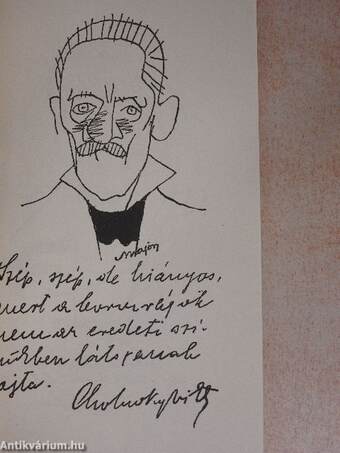 Major
Szép, szép, de hiányos,
mert a borvirágok
nem az eredeti szí-
nükben látszanak
rajta.
Cholnoky Vik
Antikvárium.hu